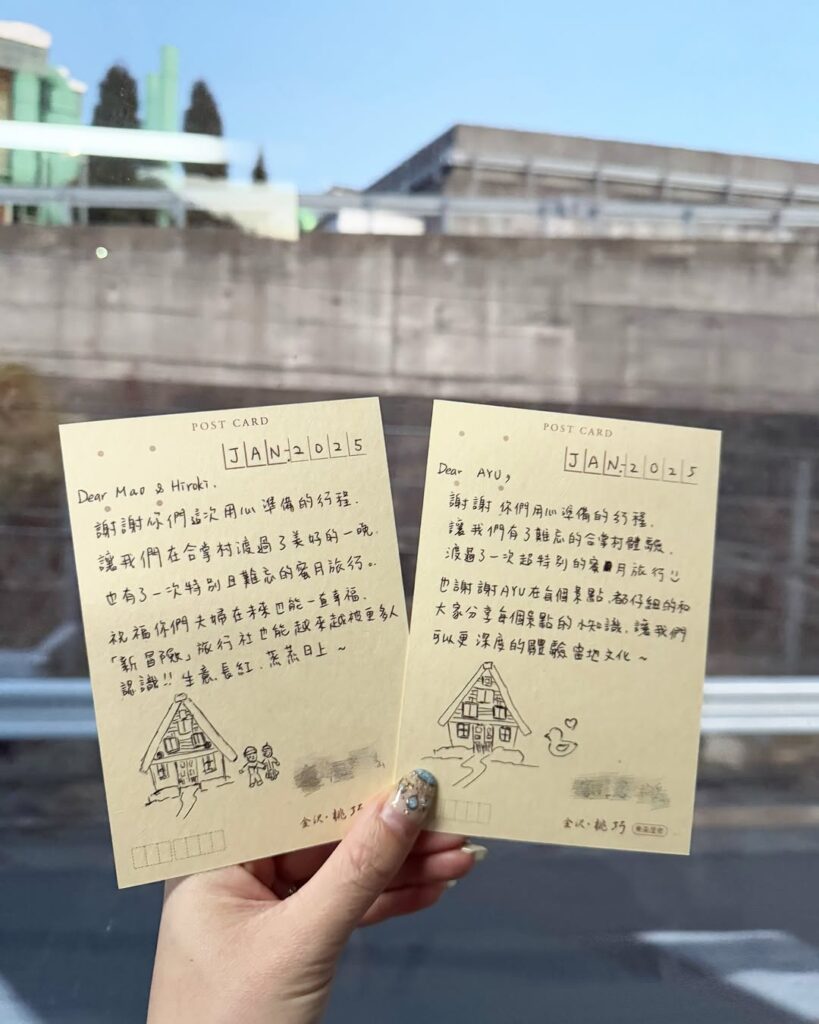 POST CARD
JAN.2025
Dear Mao & Hiroki.
謝謝你們這次用心準備的行程.
讓我們在合掌村渡過了美好的一晚.
也有了一次特別且難忘的蜜月旅行。
祝福你們夫婦在未來也能一直幸福.
「新冒險」旅行社也能越來越被更多人
認識!! 生意長紅.蒸蒸日上~
金沢·桃巧
POST CARD
JAN.2025
Dear AYU,
謝謝你們用心準備的行程.
讓我們有了難忘的合掌村體驗.
渡過了一次超特別的蜜月旅行
也謝謝AYU在每個景點.都仔細的和
大家分享每個景點的小知識.讓我們
可以更深度的體驗當地文化~
金沢·桃巧